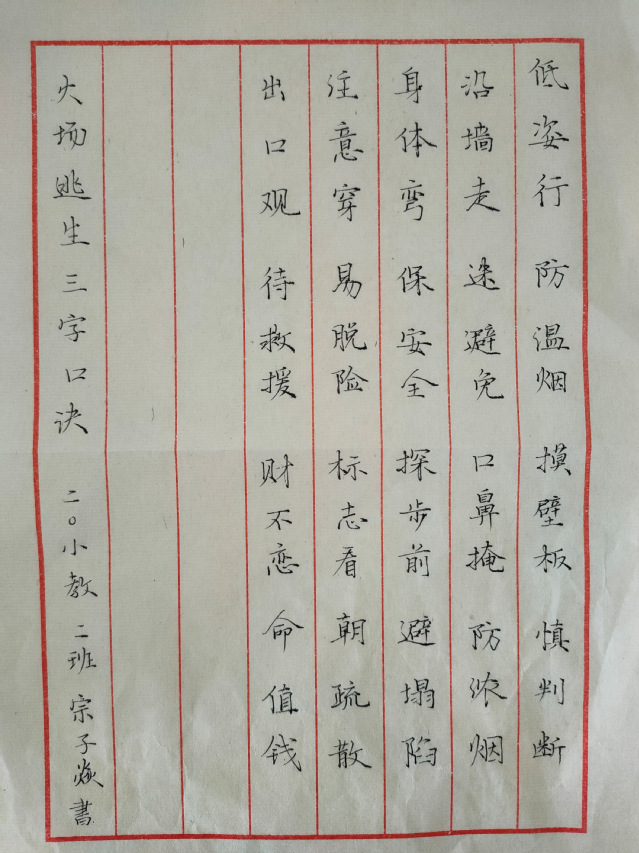 低姿行 防温烟 摸壁板 慎判断
沿墙走 迷避免 口鼻掩 防浓烟
身体弯 保安全 探步前 避塌陷
注意穿 易脱险 标志看 朝疏散
出口观 待救援 财不恋 命值钱
火场逃生三字口诀 二〇小教二班 宗子焱書